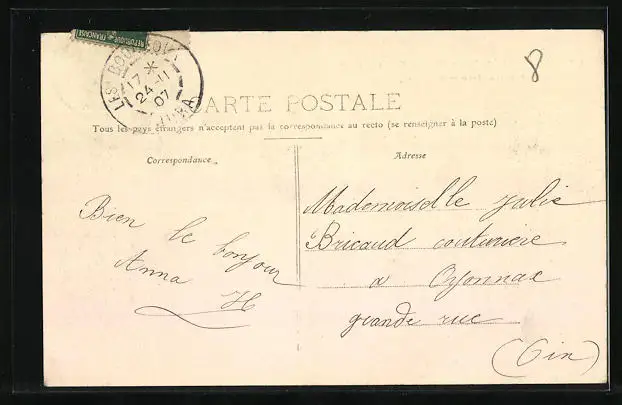 REPUBLIQUE FRANÇAISE
8
LES BOUCHOUX
17 *
24 -11
07
JURA
CARTE POSTALE
Tous les pays étrangers n'acceptent pas la correspondance au recto (se renseigner à la poste)
Correspondance
Adresse
Bien le bonjour
Anna H
Mademoiselle Julie
Bricaud couturière
a Oyonnax
grande rue
(Ain)